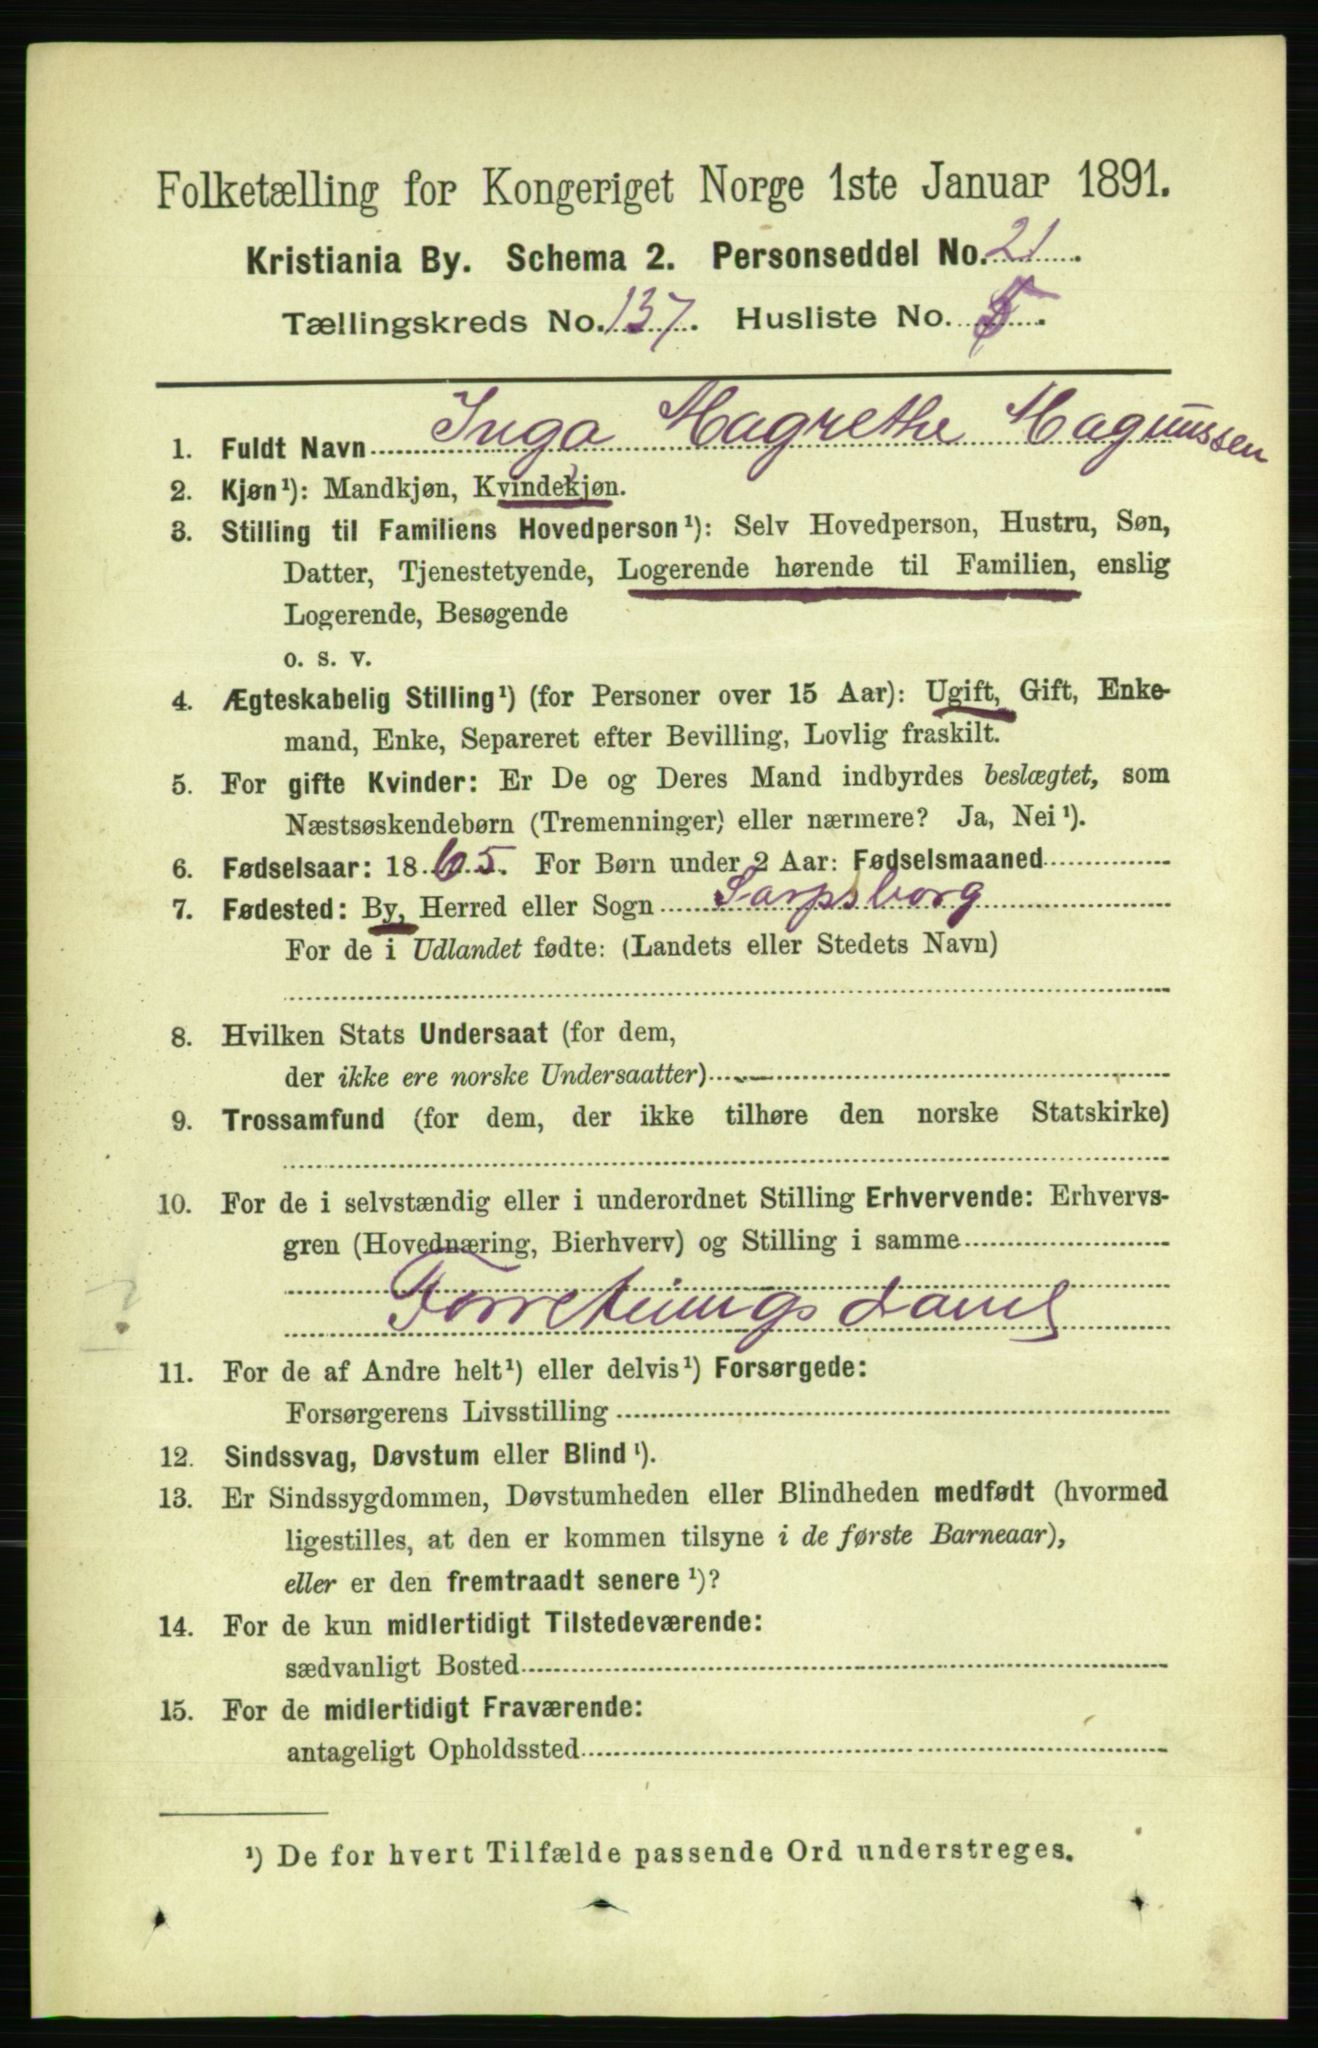 Folketælling for Kongeriget Norge 1ste Januar 1891.
Kristiania By. Schema 2. Personseddel No. 21.
Tællingskreds No. 137. Husliste No. 5.
1. Fuldt Navn Inga Magrethe Magnussen
2. Kjøn¹): Mandkjøn, Kvindekjøn.
3. Stilling til Familiens Hovedperson¹): Selv Hovedperson, Hustru, Søn,
Datter, Tjenestetyende, Logerende hørende til Familien, enslig
Logerende, Besøgende
o. s. v.
4. Ægteskabelig Stilling¹) (for Personer over 15 Aar): Ugift, Gift, Enke-
mand, Enke, Separeret efter Bevilling, Lovlig fraskilt.
5. For gifte Kvinder: Er De og Deres Mand indbyrdes beslægtet, som
Næstsøskendebørn (Tremenninger) eller nærmere? Ja, Nei¹).
6. Fødselsaar: 1865. For Børn under 2 Aar: Fødselsmaaned
7. Fødested: By, Herred eller Sogn Sarpsborg
For de i Udlandet fødte: (Landets eller Stedets Navn)
8. Hvilken Stats Undersaat (for dem,
der ikke ere norske Undersaatter)
9. Trossamfund (for dem, der ikke tilhøre den norske Statskirke)
10. For de i selvstændig eller i underordnet Stilling Erhvervende: Erhvervs-
gren (Hovednæring, Bierhverv) og Stilling i samme
Forretningsdame
11. For de af Andre helt¹) eller delvis¹) Forsørgede:
Forsørgerens Livsstilling
12. Sindssvag, Døvstum eller Blind¹).
13. Er Sindssygdommen, Døvstumheden eller Blindheden medfødt (hvormed
ligestilles, at den er kommen tilsyne i de første Barneaar),
eller er den fremtraadt senere¹)?
14. For de kun midlertidigt Tilstedeværende:
sædvanligt Bosted
15. For de midlertidigt Fraværende:
antageligt Opholdssted
¹) De for hvert Tilfælde passende Ord understreges.